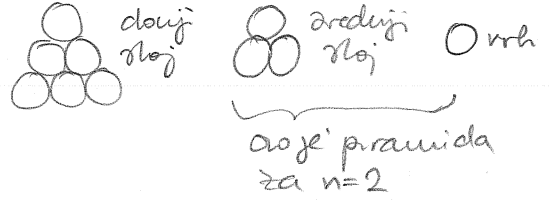 donji
sloj
srednji
sloj
vrh
ovo je piramida
za n=2